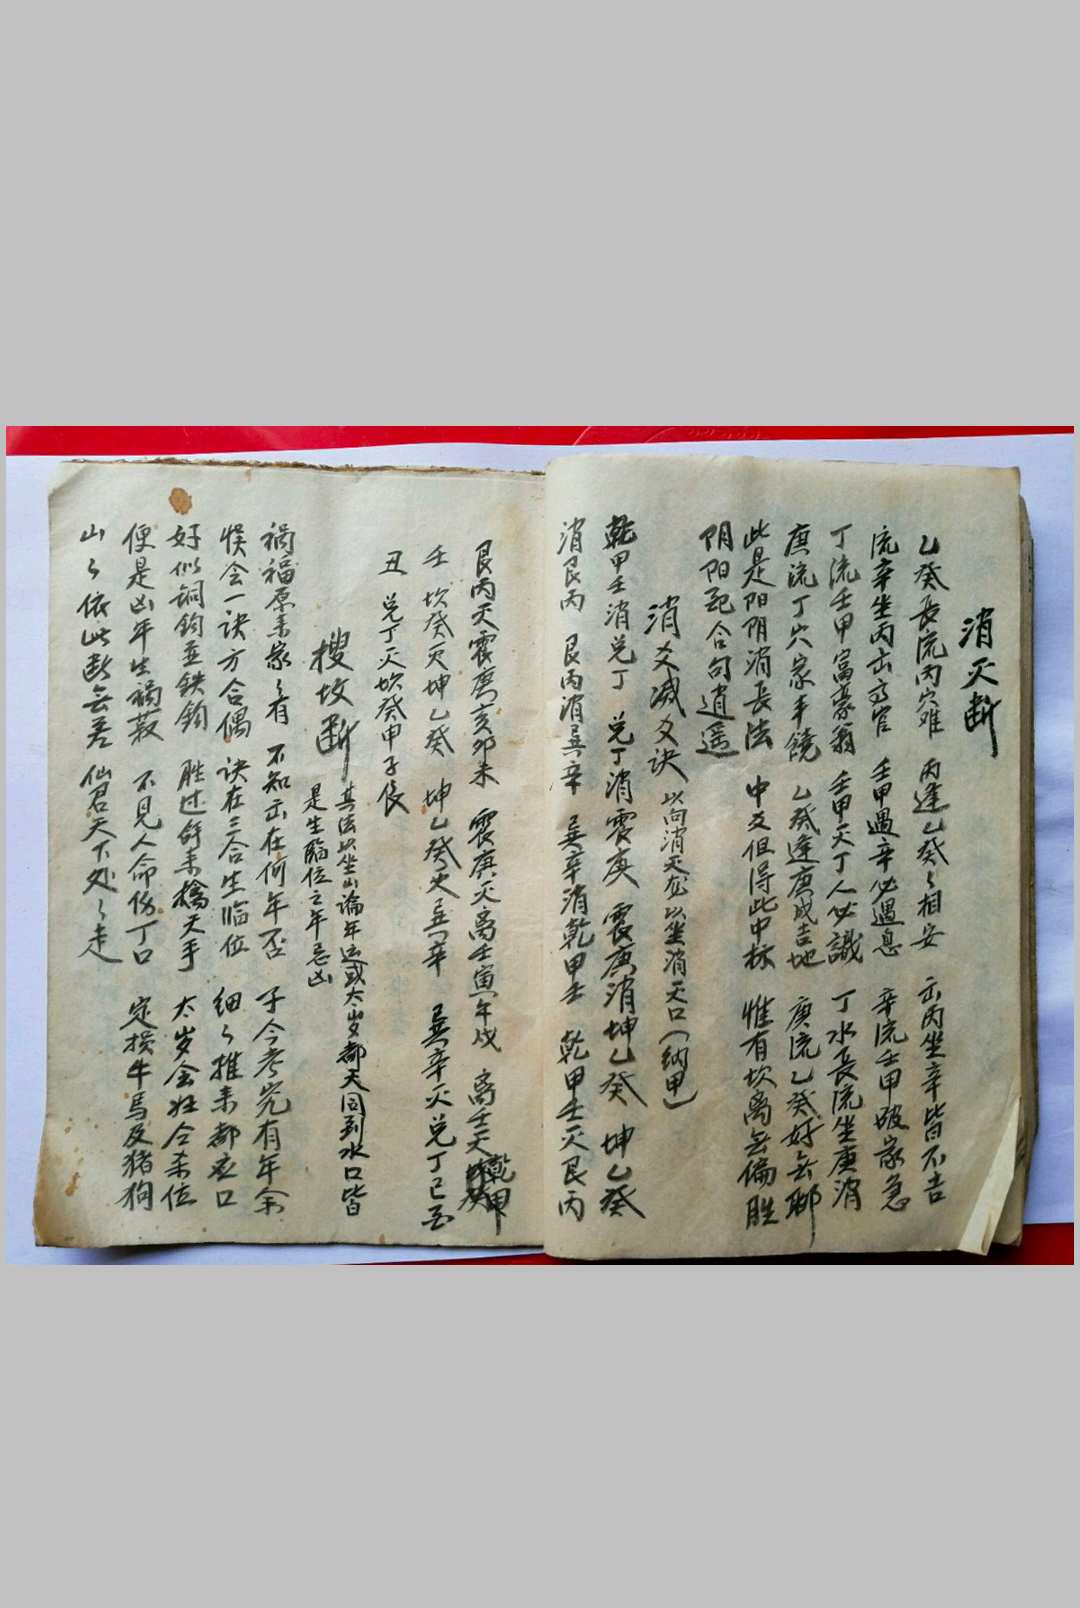 消灭断
乙癸長流丙穴难 丙逢乙癸々相安 云丙坐辛皆不吉
流辛坐丙出高官 壬甲遇辛必遇息 辛流壬甲破家急
丁流壬甲富豪翁 壬甲灭丁人必識 丁水長流坐庚消
庚流丁穴家丰饒 乙癸逢庚成吉地 庚流乙癸好無聊
此是阳阴消長法 中爻但得此中标 惟有坎离無偏胜
阴阳配合句逍遥
消爻滅爻诀 以向消灭龙以坐消灭口(納甲)
乾甲壬消兑丁 兑丁消震庚 震庚消坤乙癸 坤乙癸
消艮丙 艮丙消巽辛 巽辛消乾甲壬 乾甲壬灭艮丙
艮丙灭震庚亥卯未 震庚灭离壬寅午戌 离壬灭乾甲
壬 坎癸灭坤乙癸 坤乙癸灭巽辛 巽辛灭兑丁巳酉
丑 兑丁灭坎癸甲子辰
搜坟断 其法以坐山論年运或太岁都天同到水口皆
是生臨位之年忌凶
禍福原来家々有 不知出在何年否 于今考究有年余
悮会一诀方合偶 诀在三合生临位 细々推来都应口
好似铜鈎並鉄鈎 胜过舒来擒天手 太岁会冲合杀位
便是凶年生禍殃 不見人命伤丁口 定损牛馬及猪狗
山々依此断無差 仙君天下处々走